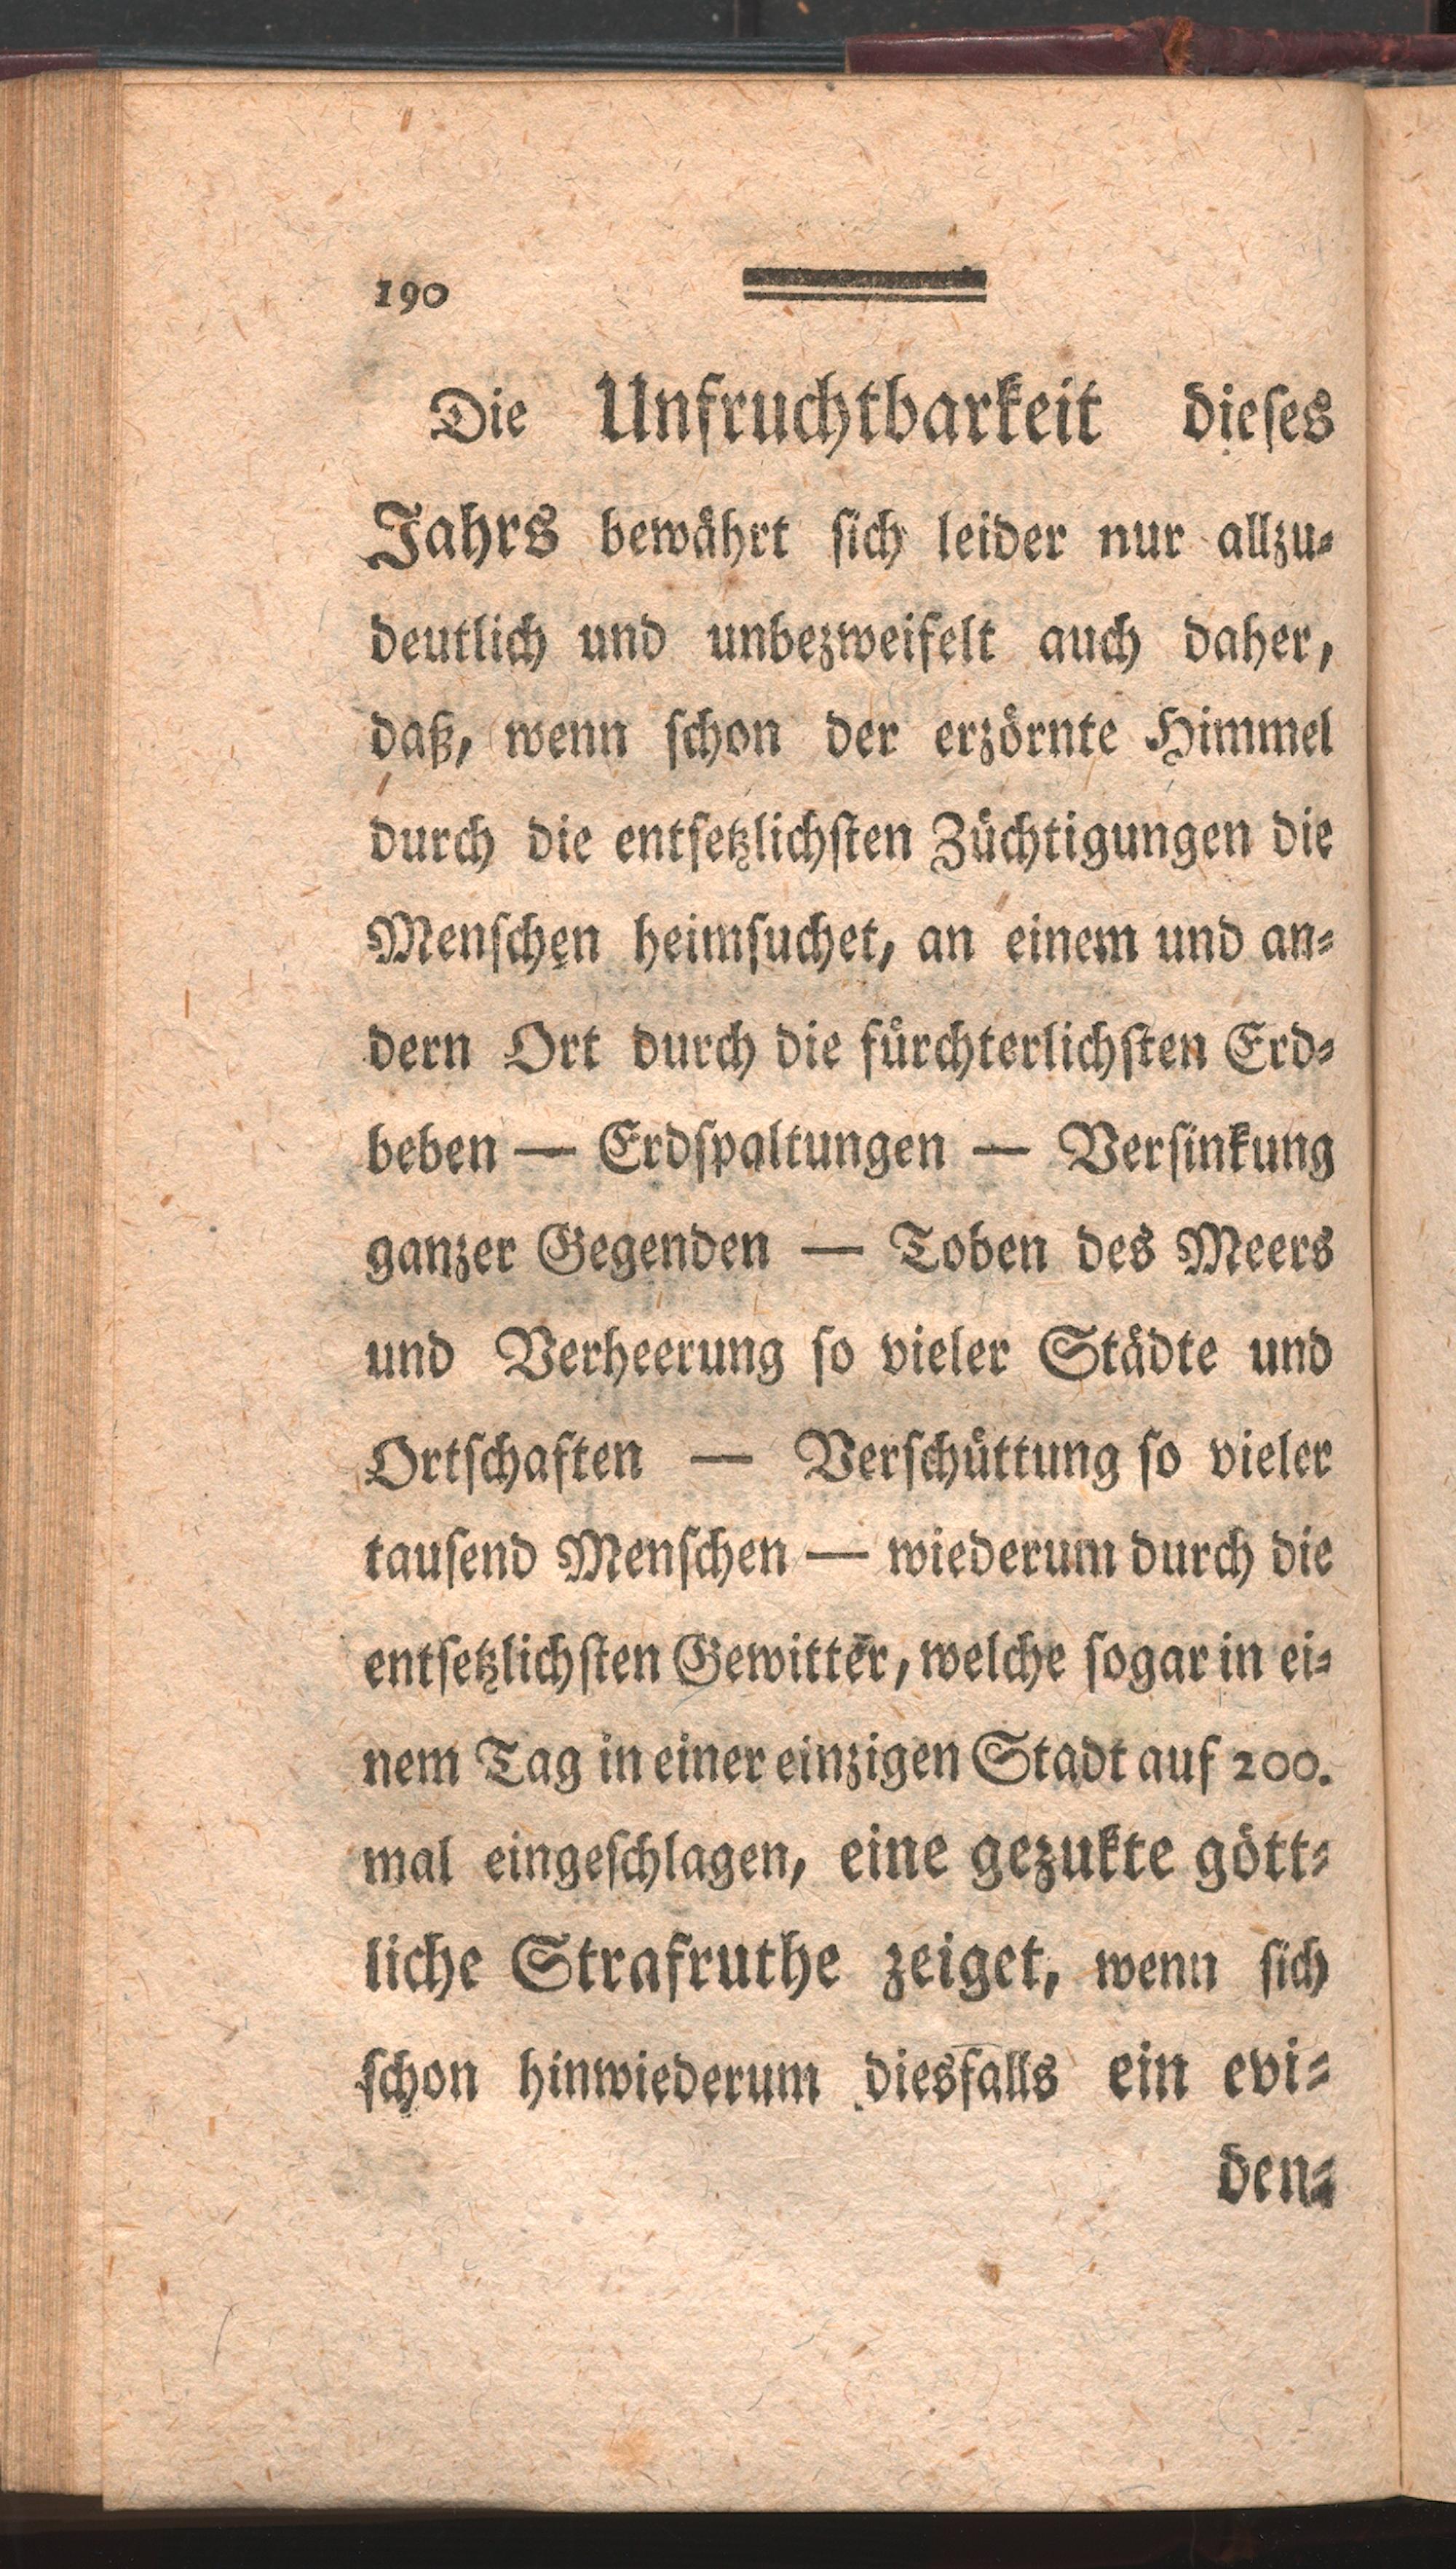 190
Die Unfruchtbarkeit dieſes
Jahrs bewaͤhrt ſich leider nur allzu⸗
deutlich und unbezweifelt auch daher,
daß, wenn ſchon der erzoͤrnte Himmel
durch die entſetzlichſten Zuͤchtigungen die
Menſchen heimſuchet, an einem und an⸗
dern Ort durch die fuͤrchterlichſten Erd⸗
beben — Erdſpaltungen — Verſinkung
ganzer Gegenden — Toben des Meers
und Verheerung ſo vieler Staͤdte und
Ortſchaften — Verſchuͤttung ſo vieler
tauſend Menſchen — wiederum durch die
entſetzlichſten Gewitter, welche ſogar in ei⸗
nem Tag in einer einzigen Stadt auf 200.
mal eingeſchlagen, eine gezukte goͤtt⸗
liche Strafruthe zeiget, wenn ſich
ſchon hinwiederum diesfalls ein evi⸗
den⸗